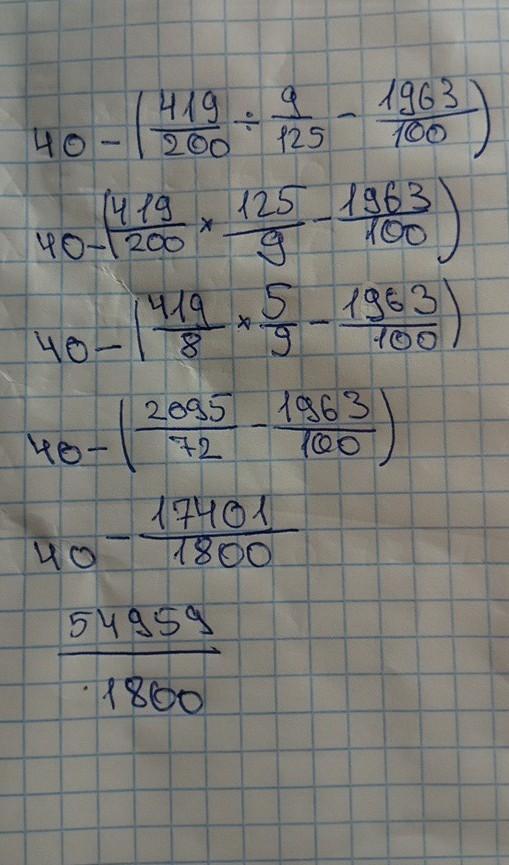 40 - (419/200 ÷ 9/125 - 1963/100)
40 - (419/200 × 125/9 - 1963/100)
40 - (419/8 × 5/9 - 1963/100)
40 - (2095/72 - 1963/100)
40 - 17401/1800
54959/1800